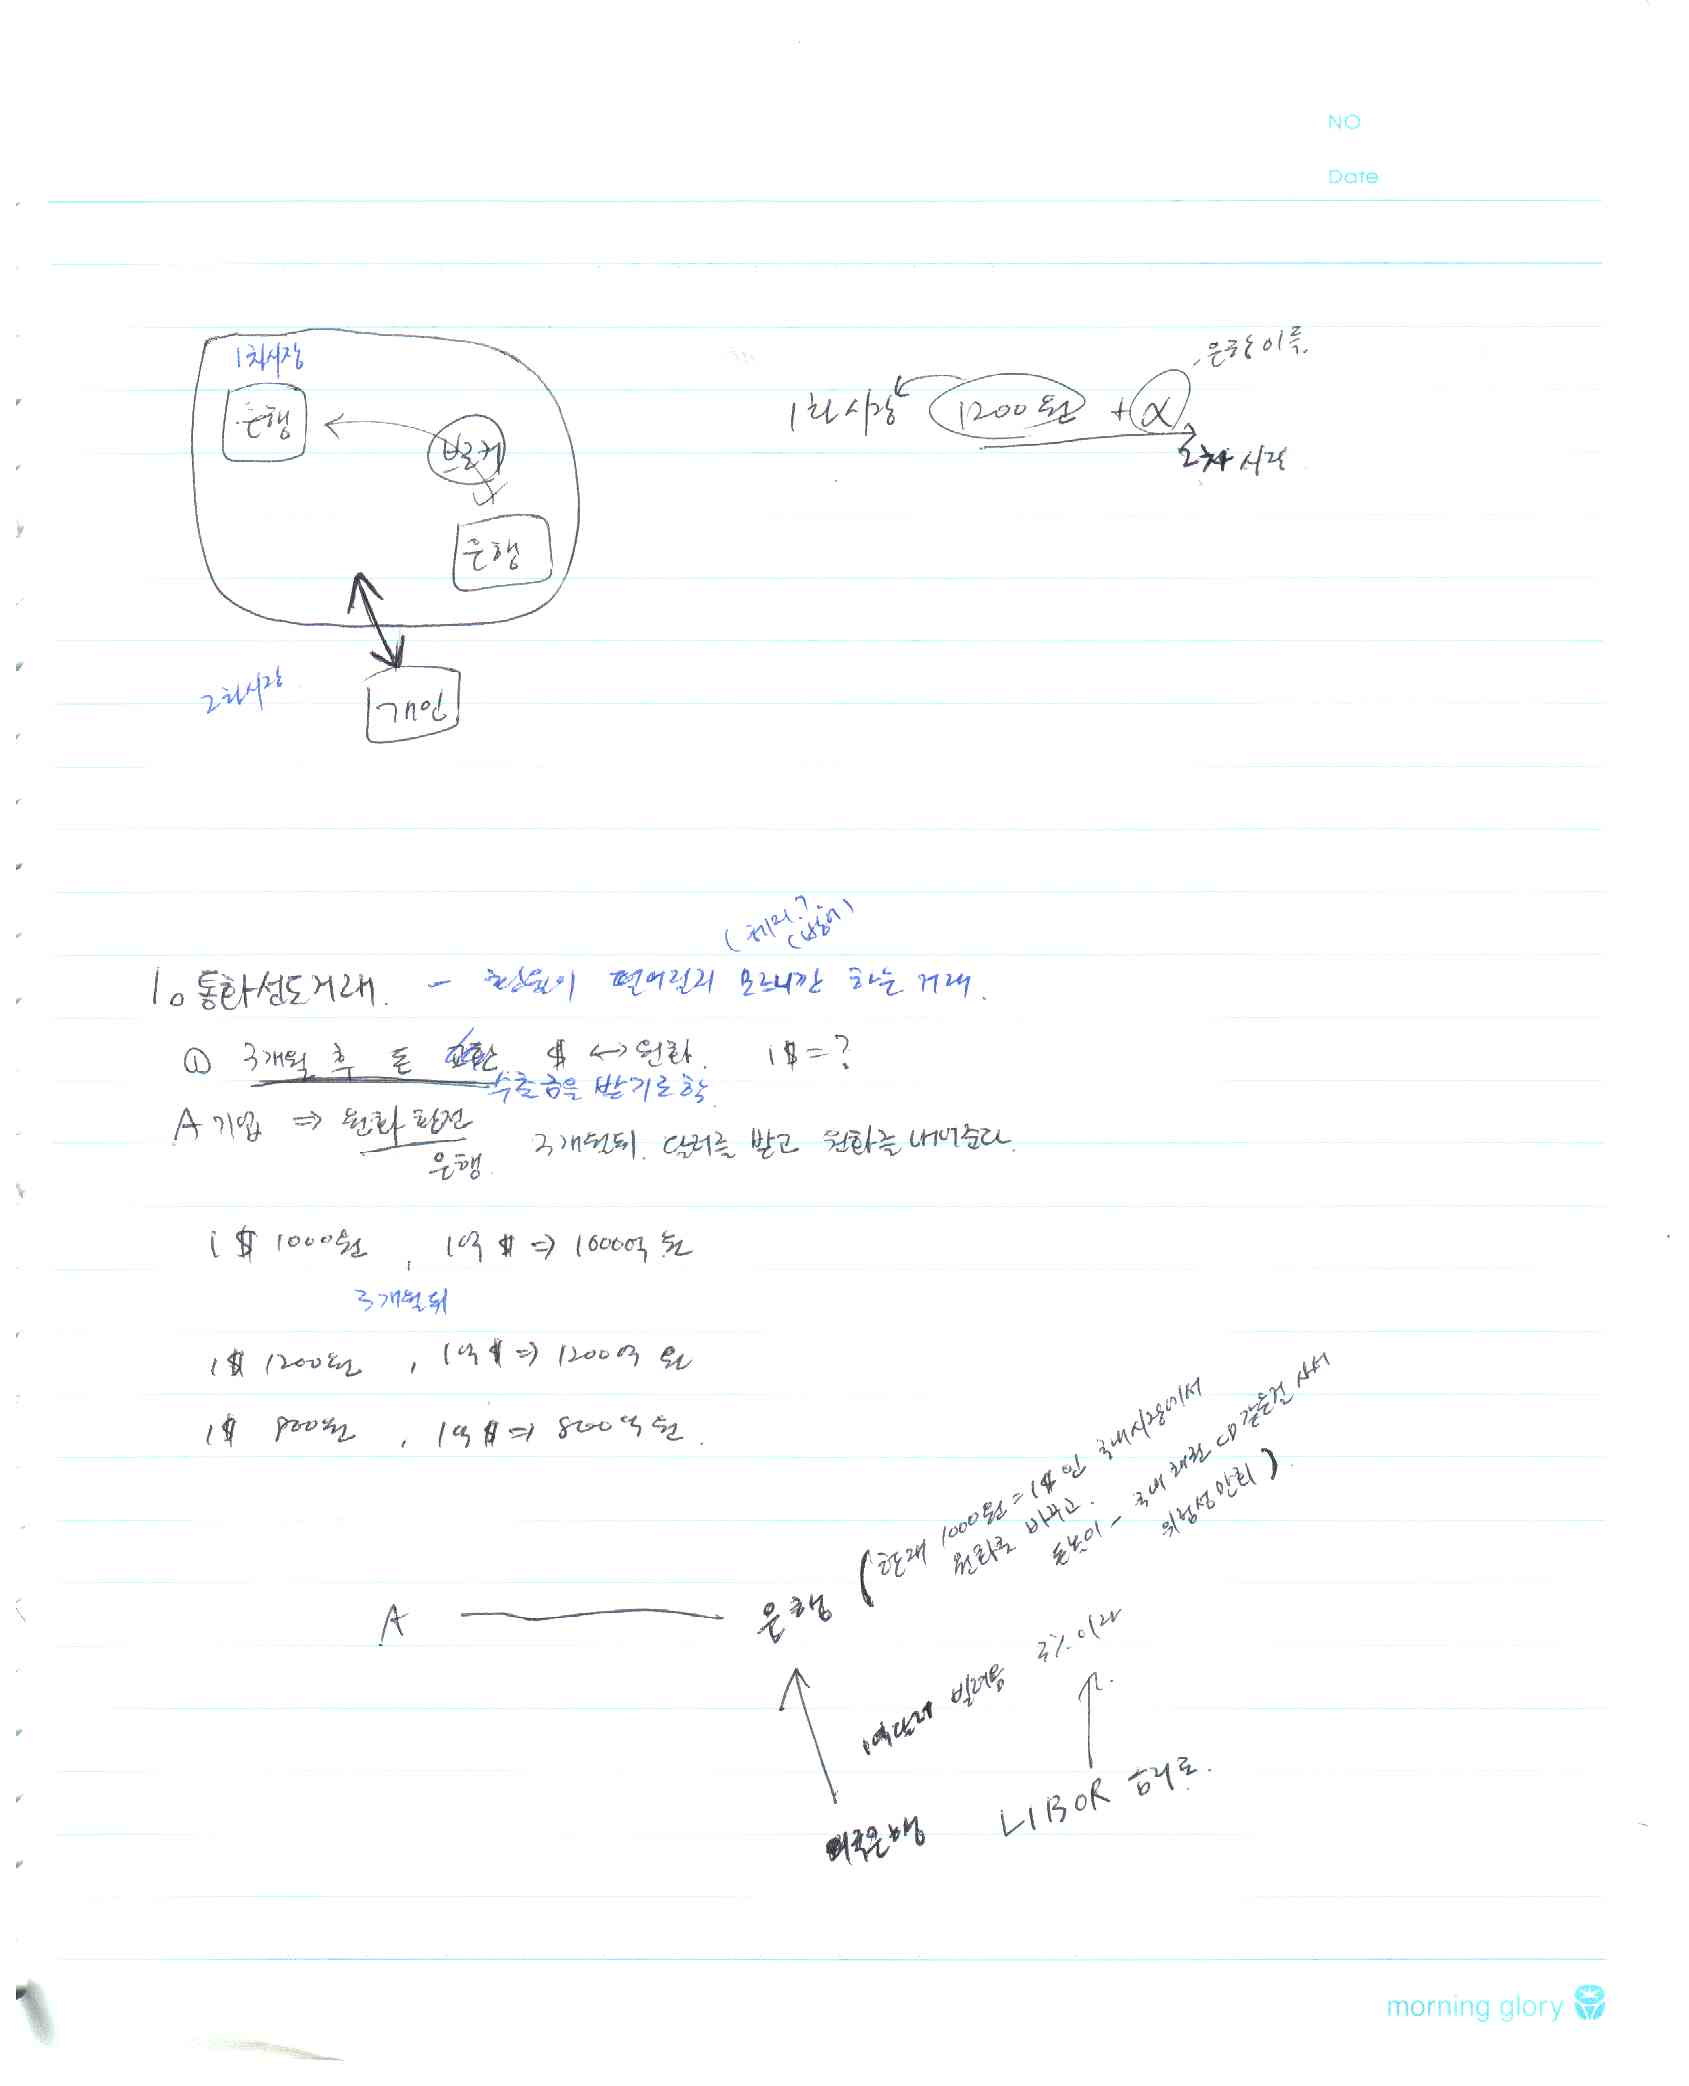 NO
Date
1차시장
은행
브로커
은행
2차시장
개인
- 은행이륵.
1차시장 1200원 + α
2차 시장
(헤지?
1. 통화선도거래. - 환율이 떨어질지 모르니깐 하는 거래.
① 3개월 후 돈 교환 $ ↔ 원화. 1$ = ?
수출금을 받기로 함.
A 기업 ⇒ 원화 환전
은행. 3개월뒤. 달러를 받고 원화를 내어준다.
1$ 1000원 , 1억$ ⇒ 1000억 원
3개월뒤
1$ 1200원 , 1억$ ⇒ 1200억 원
1$ 800원 , 1억$ ⇒ 800억 원.
A 은행
(현재 1000원 = 1$ 인 국내시장에서
원화로 바꾸고.
돈놀이 - 국내 채권 CD 같은걸 사서
위험성 만회).
1억달러 빌려옴 3%이자
외국은행 LIBOR 금리로.
morning glory